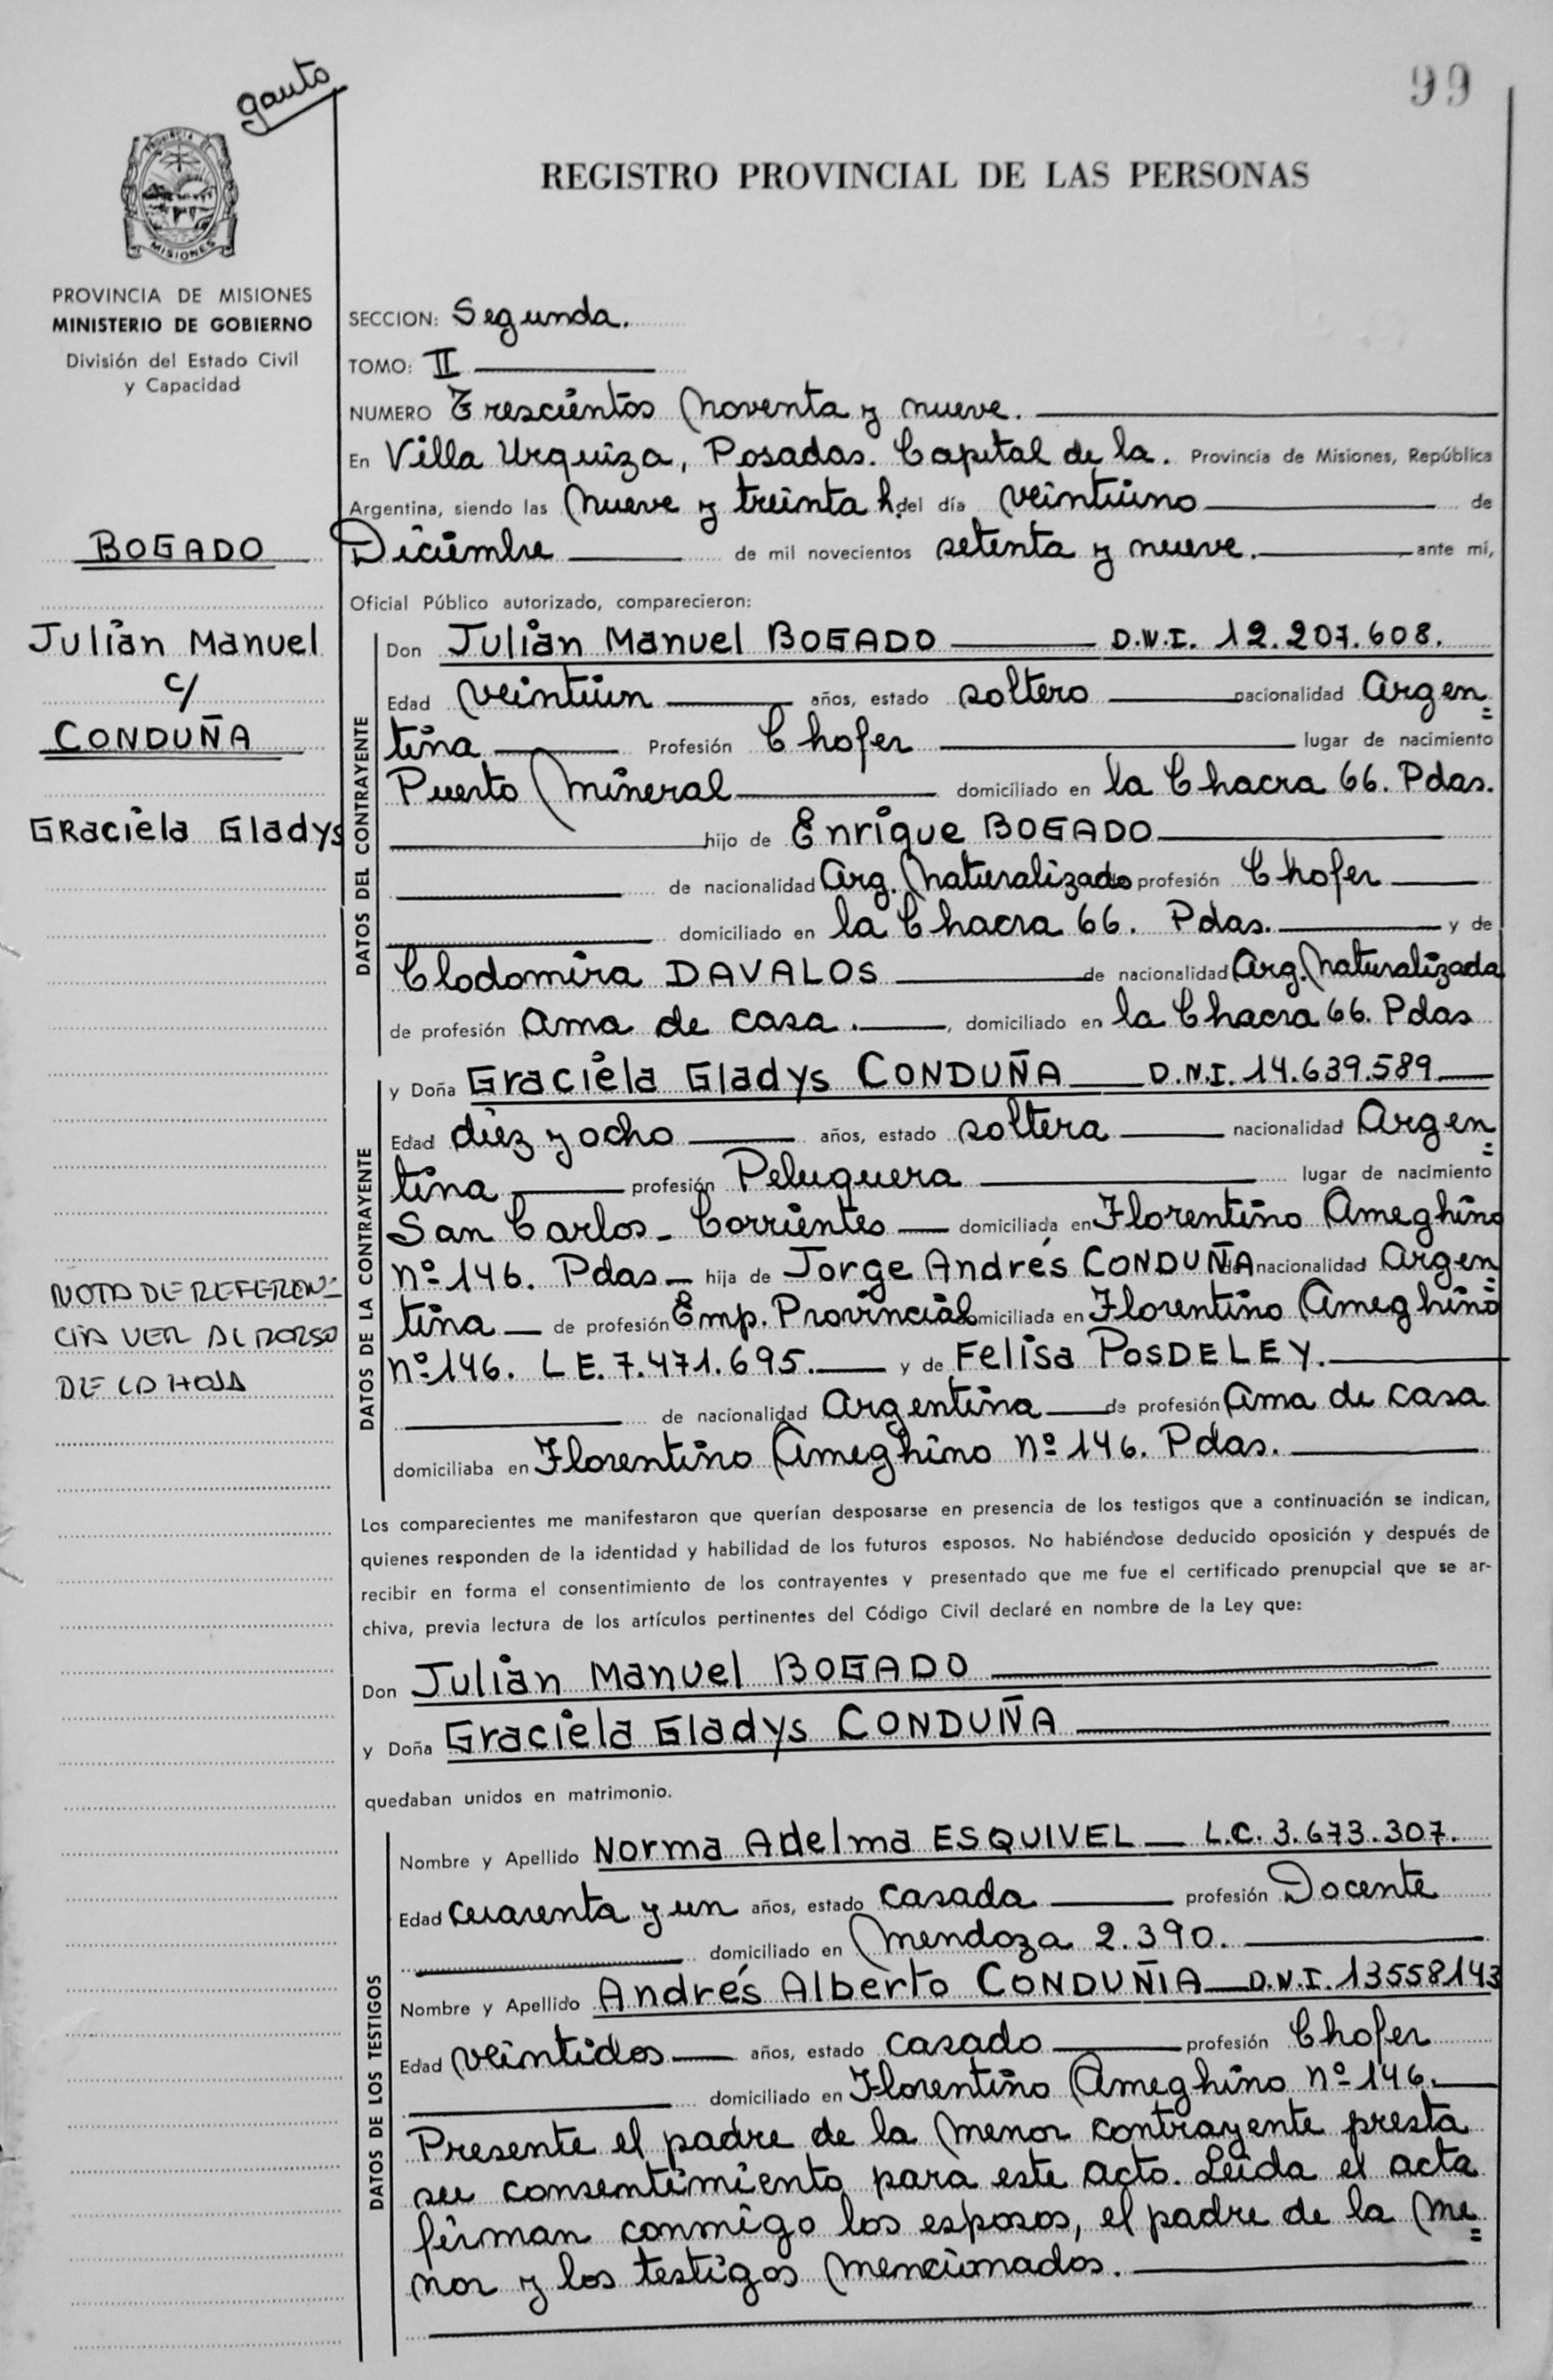 gauto
99
PROVINCIA DE
MISIONES
REGISTRO PROVINCIAL DE LAS PERSONAS
PROVINCIA DE MISIONES
MINISTERIO DE GOBIERNO
División del Estado Civil
y Capacidad
BOGADO
Julián Manuel
c/
CONDUÑA
Graciela Gladys
NOTA DE REFEREN=
CIA VER AL DORSO
DE LA HOJA
SECCION: Segunda.
TOMO: II
NUMERO Trescientos Noventa y nueve.
En Villa Urquiza, Posadas. Capital de la. Provincia de Misiones, República
Argentina, siendo las Nueve y treinta h. del día veintiuno de
Diciembre de mil novecientos setenta y nueve. ante mí,
Oficial Público autorizado, comparecieron:
DATOS DEL CONTRAYENTE
Don Julián Manuel BOGADO D.N.I. 12.207.608.
Edad veintiún años, estado soltero nacionalidad Argen=
tina Profesión Chofer lugar de nacimiento
Puerto Mineral domiciliado en la Chacra 66. Pdas.
hijo de Enrique BOGADO
de nacionalidad Arg. Naturalizado profesión Chofer
domiciliado en la Chacra 66. Pdas. y de
Clodomira DAVALOS de nacionalidad Arg. Naturalizada
de profesión Ama de casa. , domiciliado en la Chacra 66. Pdas
DATOS DE LA CONTRAYENTE
y Doña Graciela Gladys CONDUÑA D.N.I. 14.639.589
Edad diez y ocho años, estado soltera nacionalidad Argen=
tina profesión Peluquera lugar de nacimiento
San Carlos - Corrientes domiciliada en Florentino Ameghino
Nº 146. Pdas hija de Jorge Andrés CONDUÑA de nacionalidad Argen=
tina de profesión Emp. Provincial domiciliada en Florentino Ameghino
Nº 146. L E. 7.471.695. y de Felisa POSDELEY.
de nacionalidad Argentina de profesión Ama de casa
domiciliaba en Florentino Ameghino Nº 146. Pdas.
Los comparecientes me manifestaron que querían desposarse en presencia de los testigos que a continuación se indican,
quienes responden de la identidad y habilidad de los futuros esposos. No habiéndose deducido oposición y después de
recibir en forma el consentimiento de los contrayentes y presentado que me fue el certificado prenupcial que se ar-
chiva, previa lectura de los artículos pertinentes del Código Civil declaré en nombre de la Ley que:
Don Julián Manuel BOGADO
y Doña Graciela Gladys CONDUÑA
quedaban unidos en matrimonio.
DATOS DE LOS TESTIGOS
Nombre y Apellido Norma Adelma ESQUIVEL L.C. 3.673.307.
Edad cuarenta y un años, estado casada profesión Docente
domiciliado en Mendoza 2.390.
Nombre y Apellido Andrés Alberto CONDUÑIA D.N.I. 13558143
Edad veintidos años, estado casado profesión Chofer
domiciliado en Florentino Ameghino Nº 146.
Presente el padre de la Menor contrayente presta
su consentimiento para este acto. Leida el acta
firman conmigo los esposos, el padre de la Me=
nor y los testigos Mencionados.